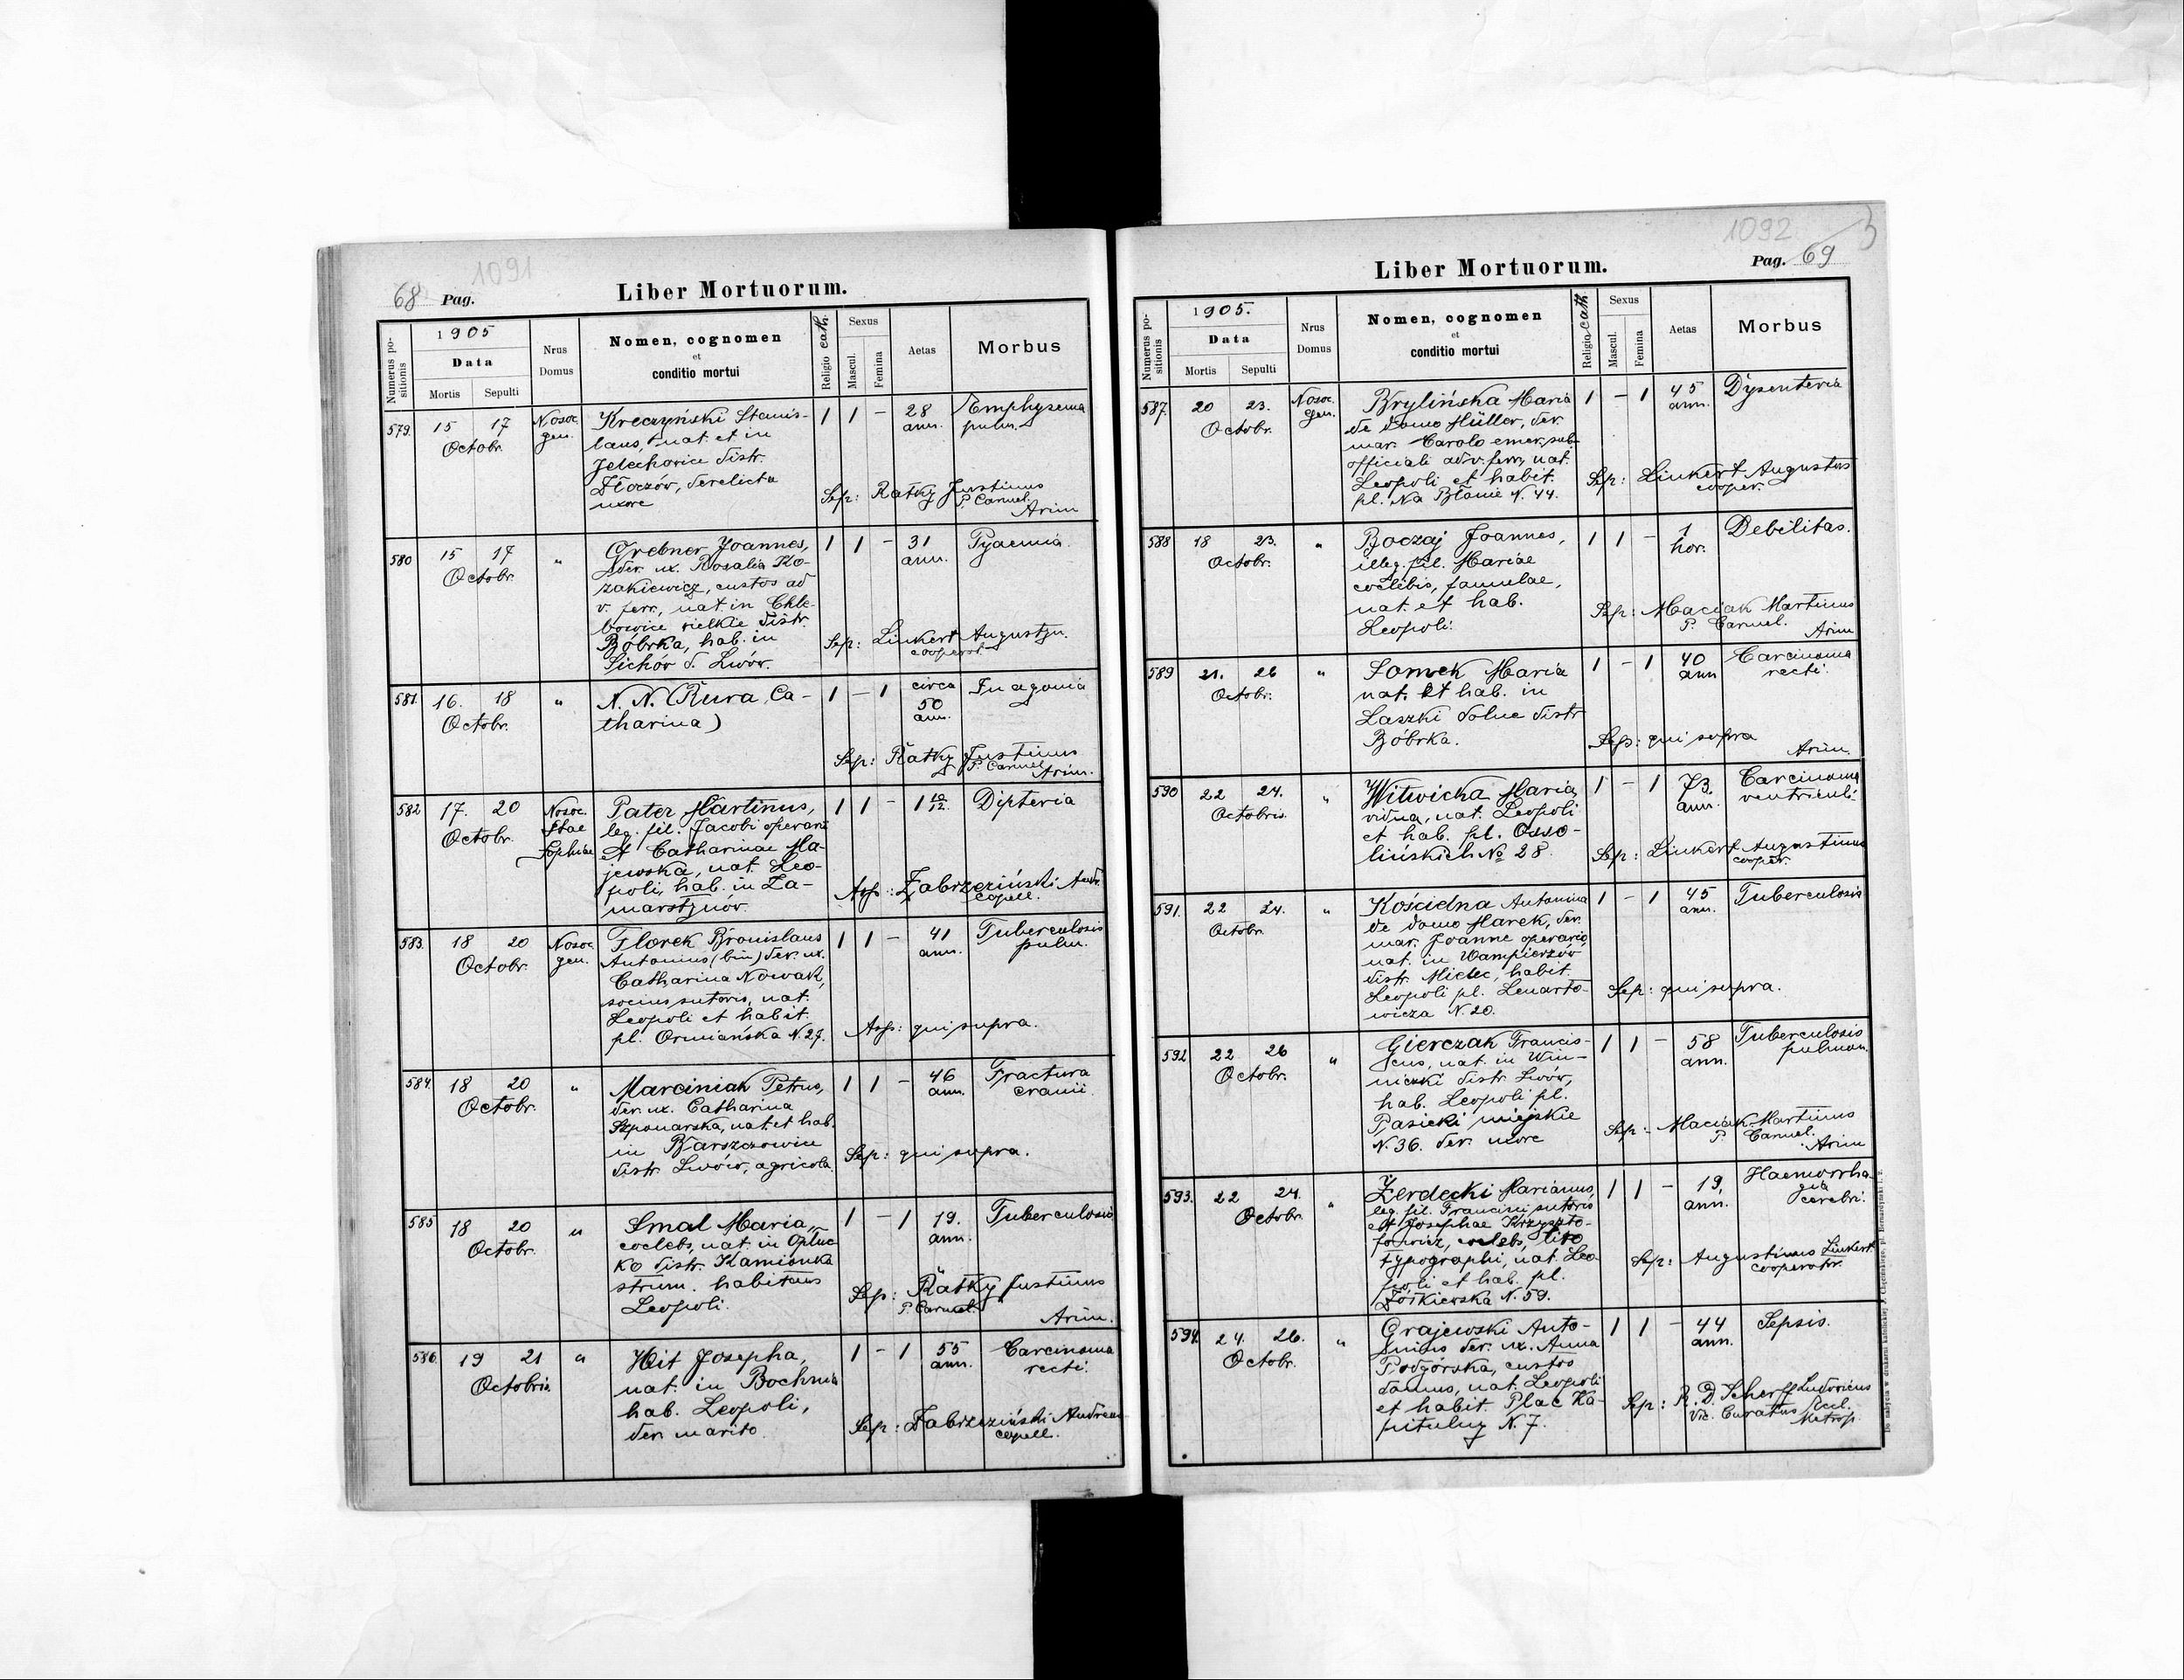 1091
68 Pag.
Liber Mortuorum.
Numerus positionis
1905
Data
Mortis
Sepulti
Nrus Domus
Nomen, cognomen
et
conditio mortui
Religio cath.
Sexus
Mascul.
Femina
Aetas
Morbus
579. 15 17 Nosoc. Kreczyński Stanis- 1 1 - 28 Emphysema
Octobr. gen. laus, nat. et in ann. pulm.
Jelechowice distr.
Złoczów, derelicta
uxore
Sep: Ratky Justinus
P. Carmel.
Arim
580 15 17 " Grebner Joannes, 1 1 - 31 Pyaemia
Octobr. der. ux. Rosalia Ko- ann.
zakiewicz, custos ad
v. ferr., nat in Chle-
bowice wielkie distr.
Bóbrka, hab. in
Sichów d. Lwów.
Sep: Linkert Augustyn.
cooperat.
581. 16. 18 " N. N. (Rura Ca- 1 - 1 circa In agonia
Octobr. tharina) 50
ann.
Sep: Ratky Justinus
P. Carmel Arim.
582 17. 20 Nosoc. Pater Martinus, 1 1 - 1 10/12. Dipteria
Octobr. Stae leg. fil. Jacobi operarii
Sophiae et Catharinae Ma-
jewska, nat. Leo-
poli, hab. in Za-
marstynów.
Asp: Zabrzeziński Andr.
capell.
583. 18 20 Nosoc. Florek Bronislaus 1 1 - 41 Tuberculosis
Octobr. gen. Antonius (bin) der. ux. ann. pulm.
Catharina Nowak,
socius sutoris, nat.
Leopoli et habit.
pl. Ormiańska N. 27.
Asp: qui supra.
584. 18 20 " Marciniak Petrus, 1 1 - 46 Fractura
Octobr. der. ux. Catharina ann. cranii.
Szponarska, nat. et hab.
in Barszczowice
distr. Lwów, agricola.
Sep: qui supra.
585 18 20 " Smal Maria, 1 - 1 19. Tuberculosis
Octobr. coelebs, nat. in Opłuc- ann.
ko distr. Kamionka
strum. habitans
Leopoli.
Sep: Ratky Justinus
P. Carmel.
Arim.
586. 19 21 " Wit Josepha, 1 - 1 55 Carcinoma
Octobris nat. in Bochnia ann. recti.
hab. Leopoli,
der. marito.
Sep: Zabrzeziński Andreas
capell.
1092
Liber Mortuorum.
Pag. 69
Numerus positionis
1905.
Data
Mortis
Sepulti
Nrus
Domus
Nomen, cognomen
et
conditio mortui
Religio cath.
Sexus
Mascul.
Femina
Aetas
Morbus
587. 20 23. Nosoc. Brylińska Maria 1 - 1 45 Dysenteria
Octobr. gen. de domo Müller, der. ann.
mar. Carolo emer. sub-
officiali ad v. ferr., nat.
Leopoli et habit.
pl. Na Błonie N. 44.
Sep: Linkert Augustus
cooper.
588 18 23. " Boczaj Joannes, 1 1 - 1 Debilitas.
Octobr. illeg. fil. Mariae hor.
coelibis, famulae,
nat. et hab.
Leopoli.
Sep: Maciak Martinus
P. Carmel.
Arim
589 21. 26 " Somek Maria 1 - 1 40 Carcinoma
Octobr. nat. et hab. in ann recti.
Laszki dolne distr
Bóbrka.
Sep: qui supra
Arim.
590 22 24. " Witwicka Maria, 1 - 1 73. Carcinoma
Octobris vidua, nat. Leopoli ann. ventriculi.
et hab. pl. Osso-
lińskich № 28.
Sep: Linkert Augustinus
cooper.
591. 22 24. " Kościelna Antonina 1 - 1 45 Tuberculosis
Octobr. de domo Marek, der. ann.
mar. Joanne operario,
nat. in Wampierzów
distr. Mielec, habit.
Leopoli pl. Lenarto-
wicza N. 20.
Sep: qui supra.
592 22 26 " Gierczak Francis- 1 1 - 58 Tuberculosis
Octobr. cus, nat. in Win- ann. pulmon.
niczki distr. Lwów,
hab. Leopoli pl.
Pasieki miejskie
N. 36. der. uxore
Sep: Maciak Martinus
P. Carmel.
Arim
593. 22 24. " Zerdecki Marianus, 1 1 - 19, Haemorrha-
Octobr. leg. fil. Francisci sutoris ann. gia
et Josephae Krzyszto- cerebri.
fowicz, coelebs, lito
typographi, nat. Leo-
poli et hab. pl.
Żółkiewska N. 59.
Sep: Augustinus Linkert
cooperator.
594. 24. 26. " Grajewski Anto- 1 1 - 44 Sepsis.
Octobr. nius der. ux. Anna ann.
Podgórska, custos
domus, nat. Leopoli
et habit. Plac Ka-
pitulny N. 7.
Sep: R. D. Scherff Ludovicus
Vic. Curatus Eccl.
Metrop.